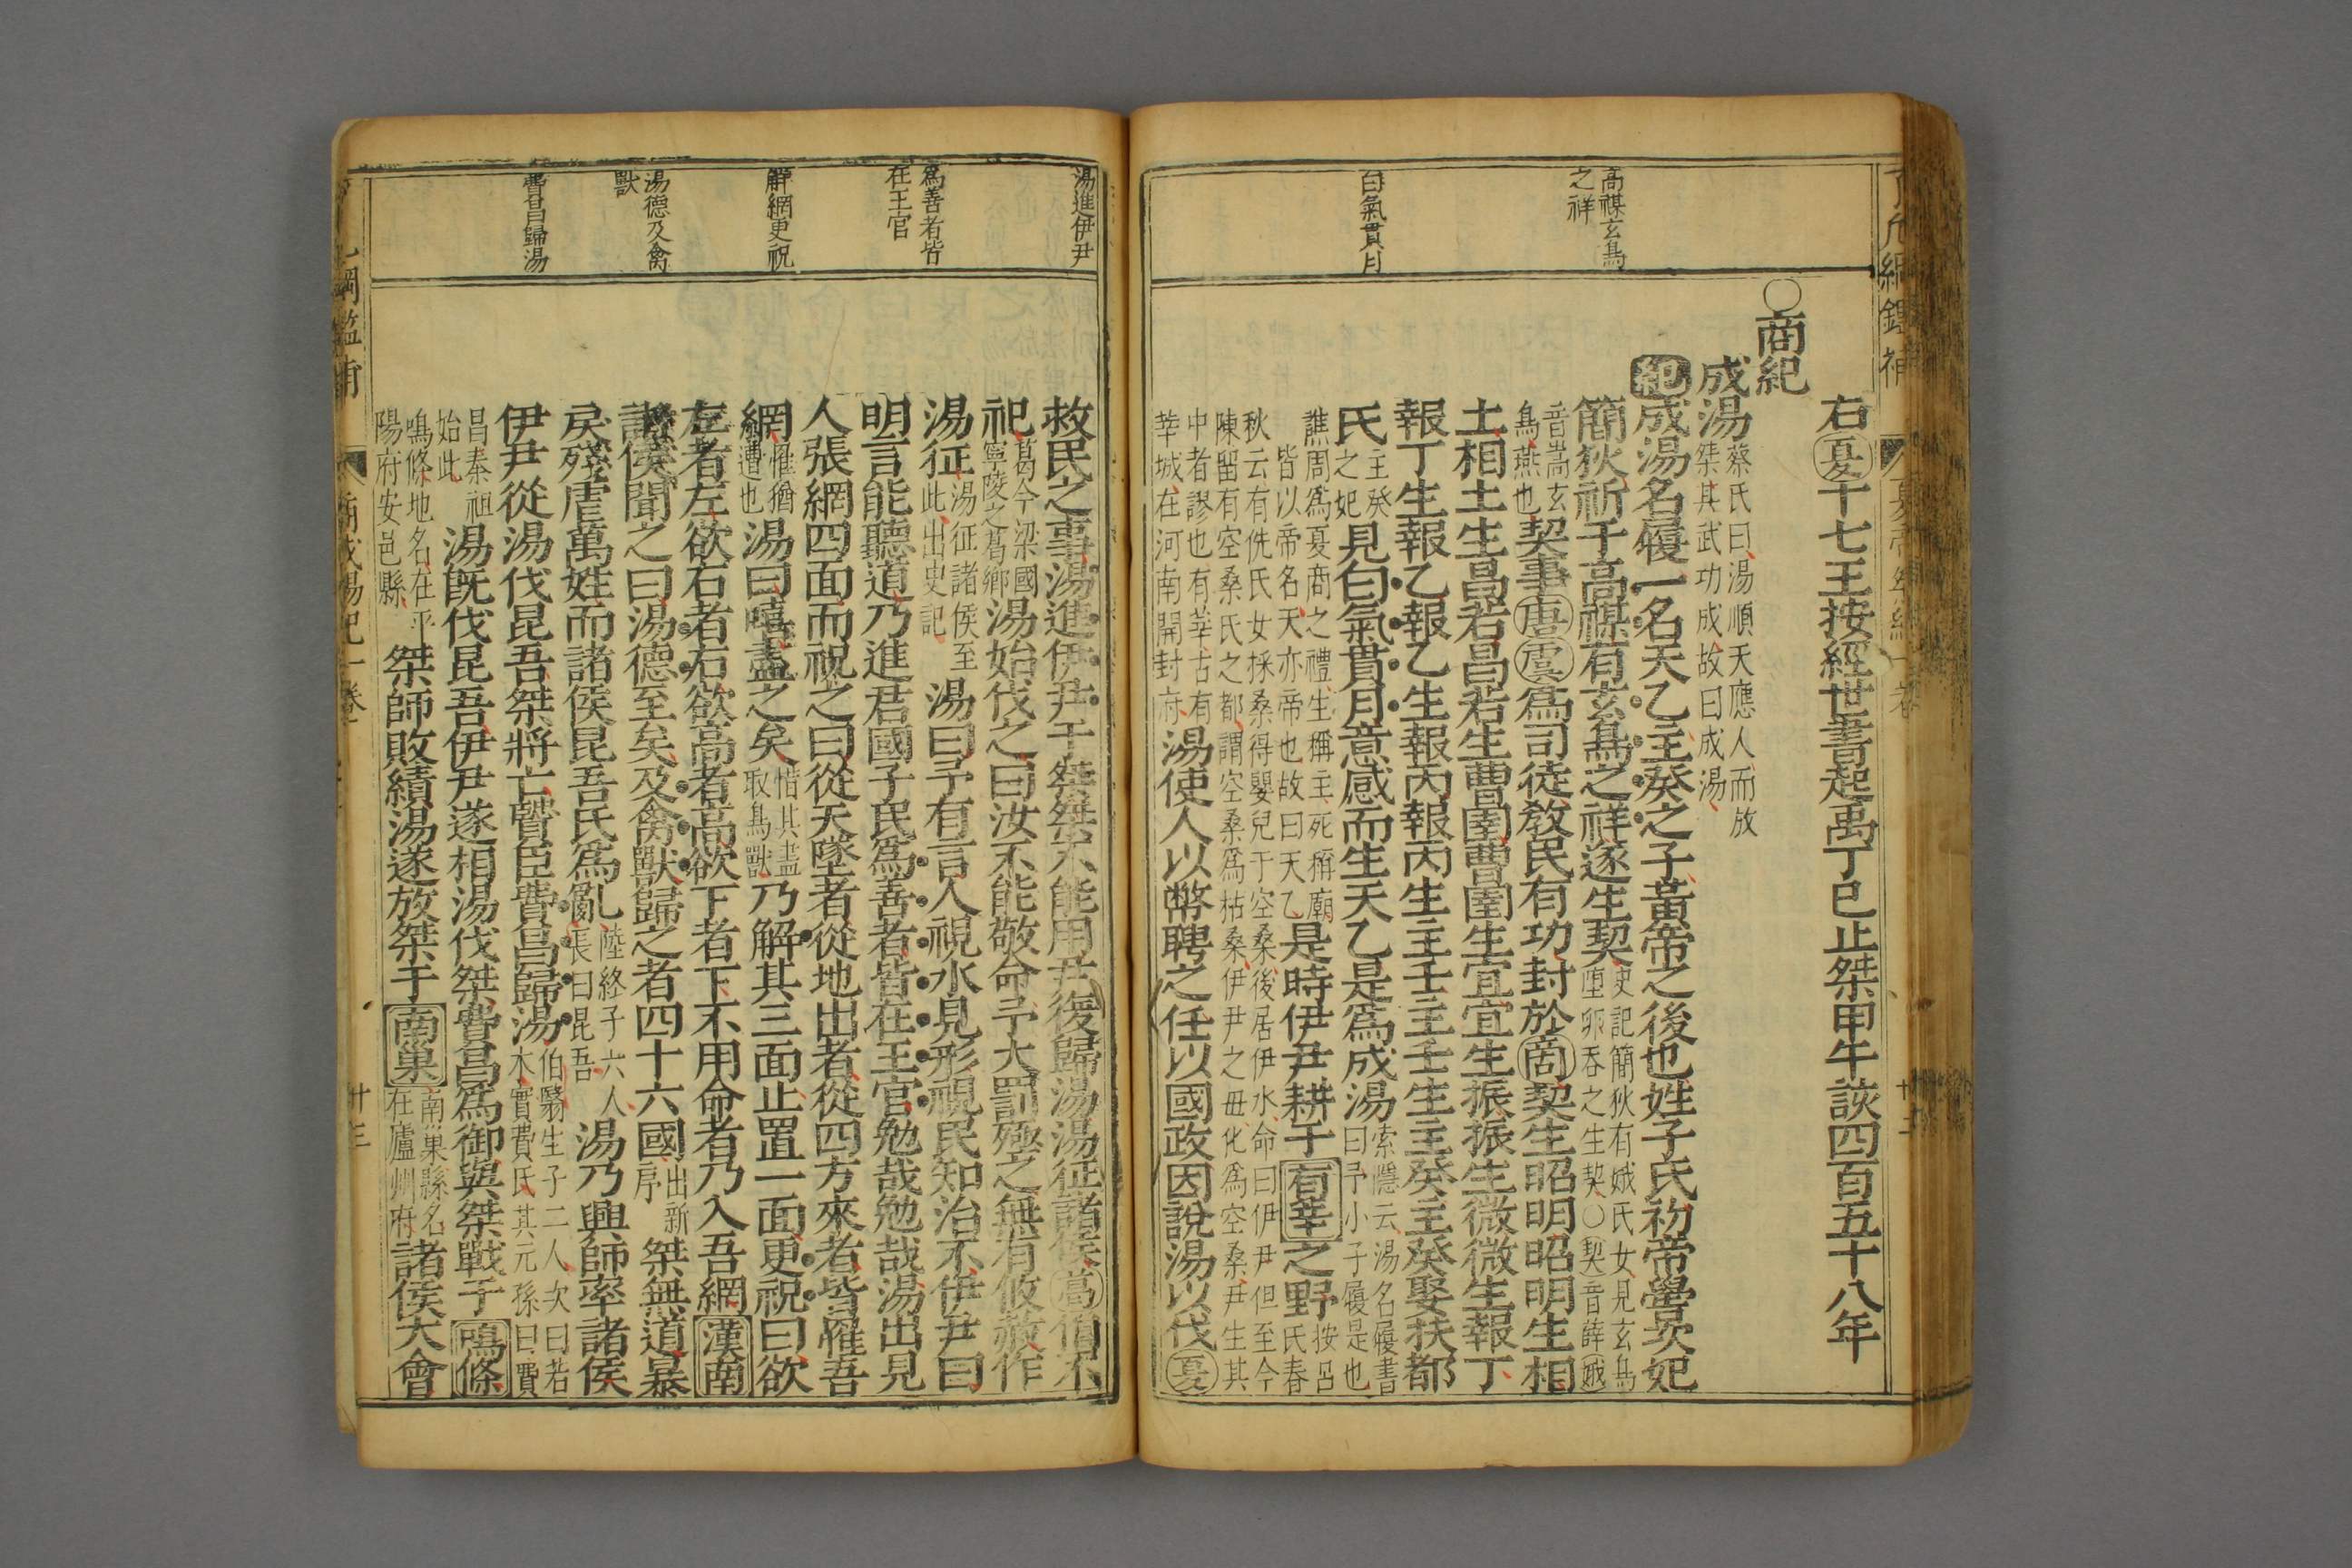 高禖玄鳥
之祥
白氣貫月
右夏十七王按經世書起禹丁巳止桀甲午該四百五十八年
○商紀
成湯蔡氏曰湯順天應人而放
桀其武功成故曰成湯
紀成湯名履一名天乙主癸之子黃帝之後也姓子氏初帝嚳次妃
簡狄祈于高禖有玄鳥之祥遂生契史記簡狄有娀氏女見玄鳥
墮卵吞之生契○契音薛娀
音嵩玄
鳥燕也契事唐虞爲司徒敎民有功封於商契生昭明昭明生相
土相土生昌若昌若生曹圉曹圉生宜宜生振振生微微生報丁
報丁生報乙報乙生報丙報丙生主壬主壬生主癸主癸娶扶都
氏主癸
之妃見白氣貫月意感而生天乙是爲成湯索隱云湯名履書
曰予小子履是也
譙周爲夏商之禮生稱主死稱廟
皆以帝名天亦帝也故曰天乙是時伊尹耕于有莘之野按呂
氏春
秋云有侁氏女採桑得嬰兒于空桑後居伊水命曰伊尹但至今
陳留有空桑氏之都謂空桑爲枯桑伊尹之毋化爲空桑尹生其
中者謬也有莘古有
莘城在河南開封府湯使人以幣聘之任以國政因說湯以伐夏
湯進伊尹
爲善者皆
在王官
解網更祝
湯德及禽
獸
費昌歸湯
救民之事湯進伊尹于桀桀不能用尹復歸湯湯征諸侯葛伯不
祀葛今梁國
寧陵之葛鄉湯始伐之曰汝不能敬命予大罰殛之無有攸赦作
湯征湯征諸侯至
此出史記湯曰予有言人視水見形視民知治不伊尹曰
明言能聽道乃進君國子民爲善者皆在王官勉哉勉哉湯出見
人張網四面而祝之曰從天墜者從地出者從四方來者皆罹吾
網罹猶
遭也湯曰嘻盡之矣惜其盡
取鳥獸乃解其三面止置一面更祝曰欲
左者左欲右者右欲高者高欲下者下不用命者乃入吾網漢南
諸侯聞之曰湯德至矣及禽獸歸之者四十六國出新
序桀無道暴
戾殘虐萬姓而諸侯昆吾氏爲亂陸終子六人
長曰昆吾湯乃興師率諸侯
伊尹從湯伐昆吾桀將亡賢臣費昌歸湯伯翳生子二人次曰若
木實費氏其元孫曰費
昌秦祖
始此湯既伐昆吾伊尹遂相湯伐桀費昌爲御與桀戰于鳴條
鳴條地名在平
陽府安邑縣桀師敗績湯遂放桀于南巢南巢縣名
在廬州府諸侯大會